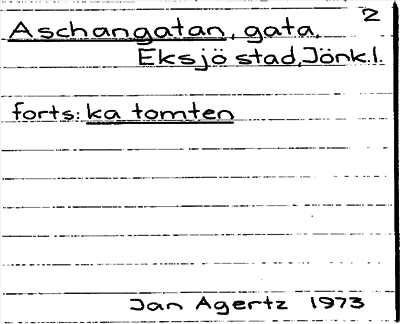 2
Aschangatan, gata,
Eksjö stad, Jönk.l.
forts: ka tomten
Jan Agertz 1973